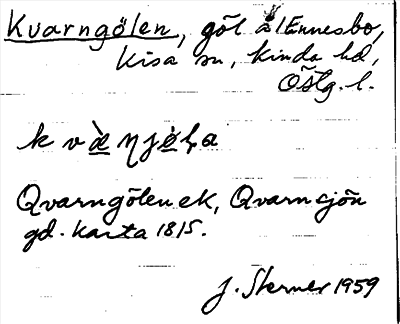 Kvarngölen, göl å Ennesbo,
Kisa sn, Kinda hd,
Östg. l.
kvæ̀ɳjø̀ḷa
Qvarngölen ek, Qvarnsjön
gd. karta 1815.
J. Sterner 1959